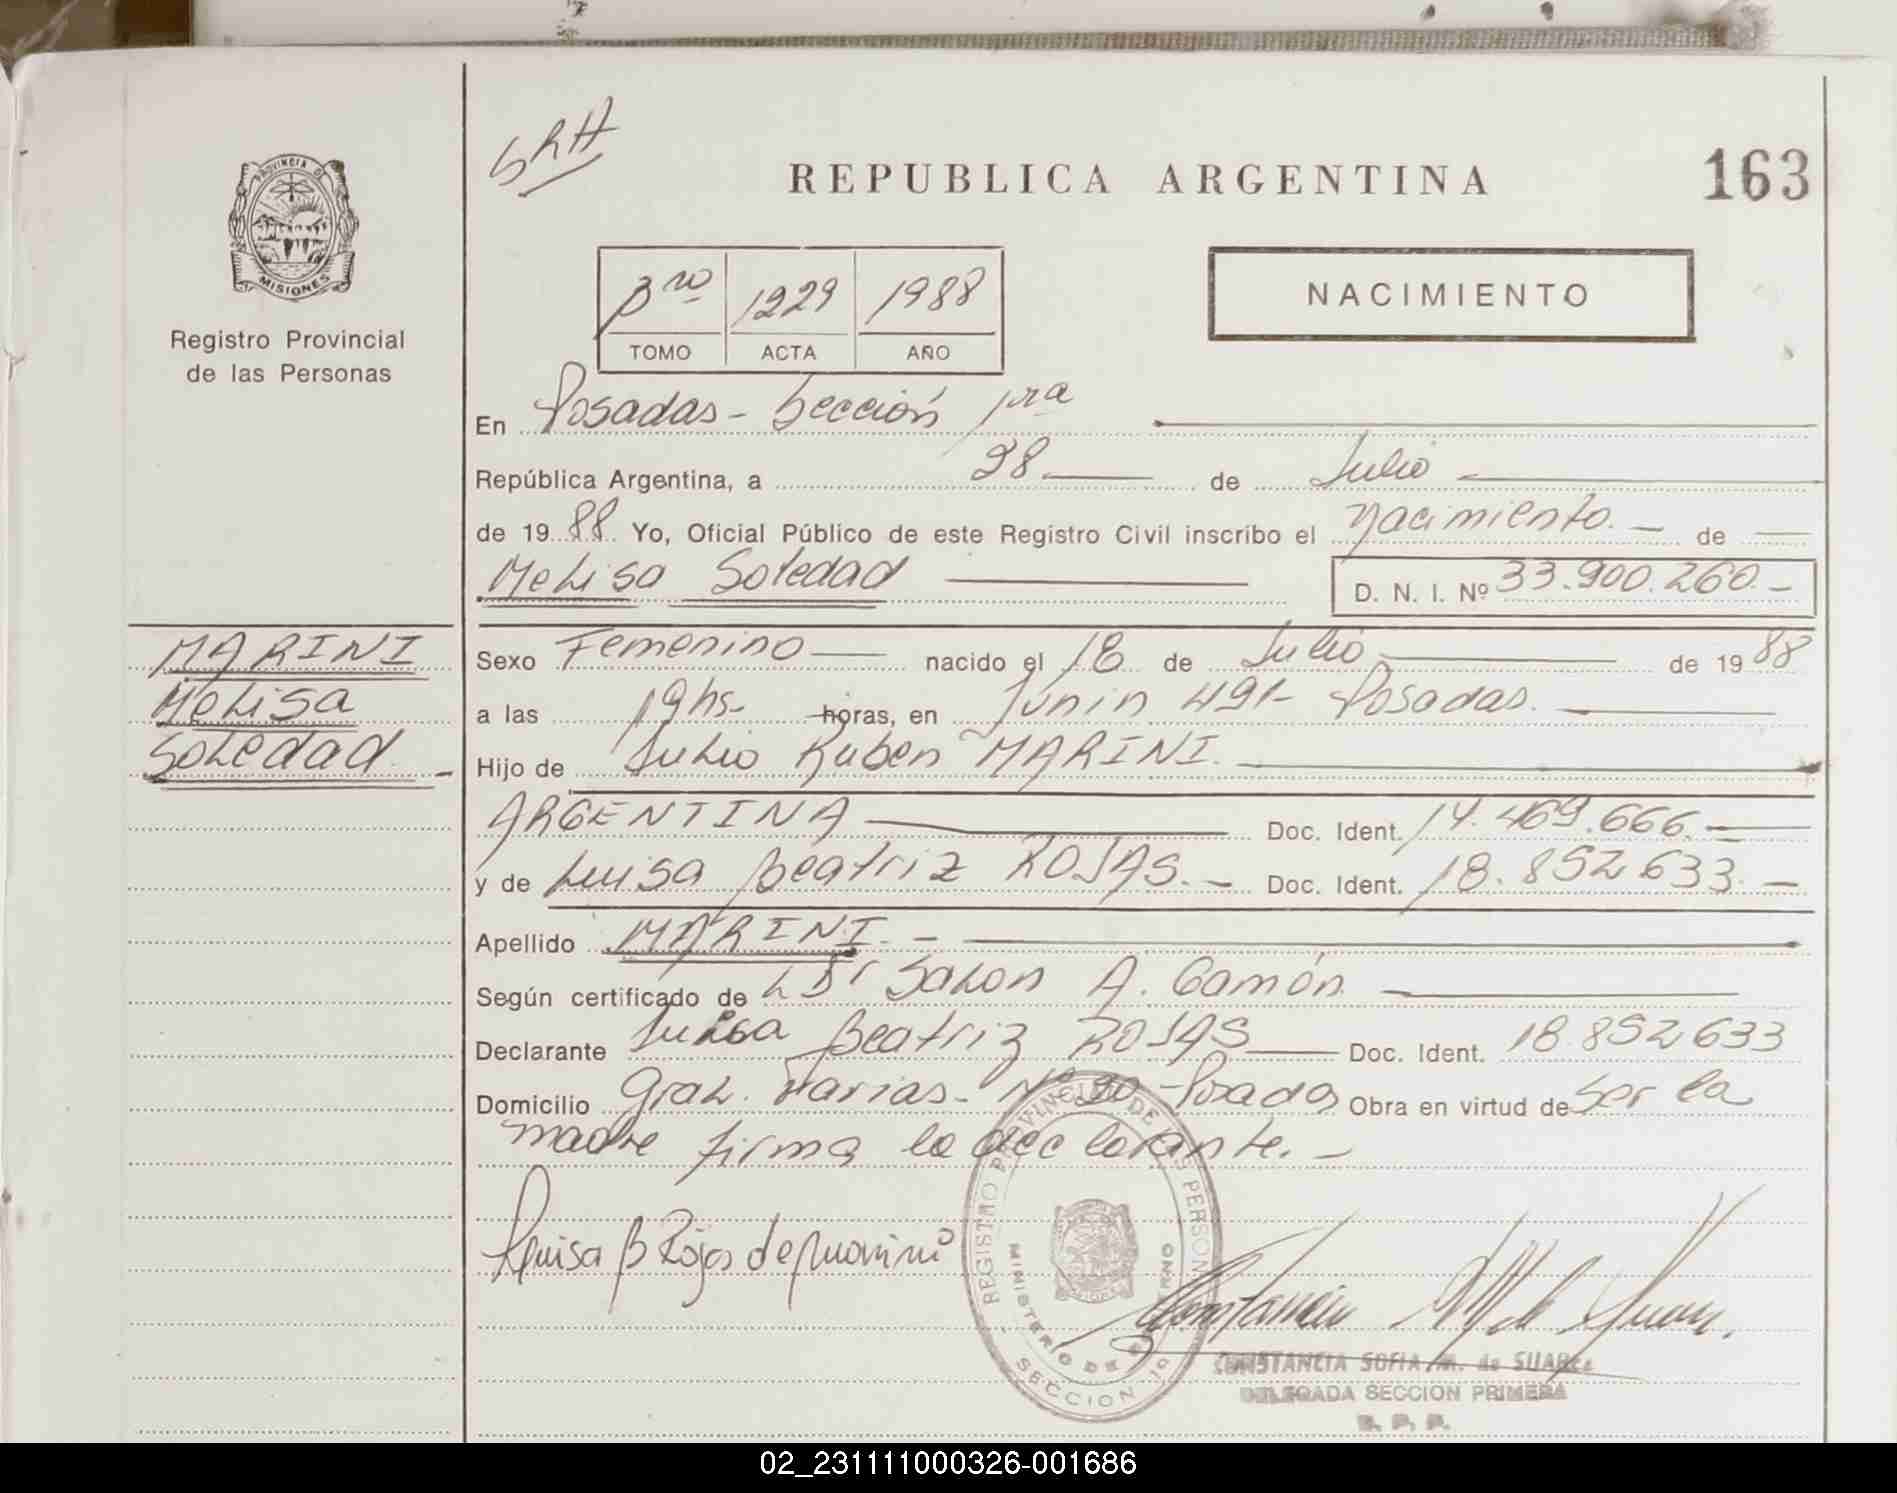 SRH
REPUBLICA ARGENTINA
163
PROVINCIA DE
MISIONES
Registro Provincial
de las Personas
3ro 1229 1988
TOMO ACTA AÑO
NACIMIENTO
En Posadas - Sección 1ra
República Argentina, a 28 de Julio
de 19 88 Yo, Oficial Público de este Registro Civil inscribo el Nacimiento. - de
Melisa Soledad D. N. I. Nº 33.900.260. -
MARINI
Melisa
Soledad -
Sexo Femenino nacido el 18 de Julio de 19 88
a las 19hs- horas, en Junin 491- Posadas.
Hijo de Julio Ruben MARINI.
ARGENTINA Doc. Ident. 14.469.666. -
y de Luisa Beatriz ROJAS. - Doc. Ident. 18.852.633. -
Apellido MARINI. -
Según certificado de Dr Salon A. Gamón
Declarante Luisa Beatriz ROJAS Doc. Ident. 18.852.633
Domicilio Gral. Farias - Nº 20 - Posadas Obra en virtud de ser la
madre firma la declarante. -
Luisa B Rojas de Marini
REGISTRO PROVINCIAL DE LAS PERSONAS
MINISTERIO DE GOBIERNO
SECCION 1a
CONSTANCIA SOFIA M. de SUAREZ
DELEGADA SECCION PRIMERA
R. P. P.
02_231111000326-001686